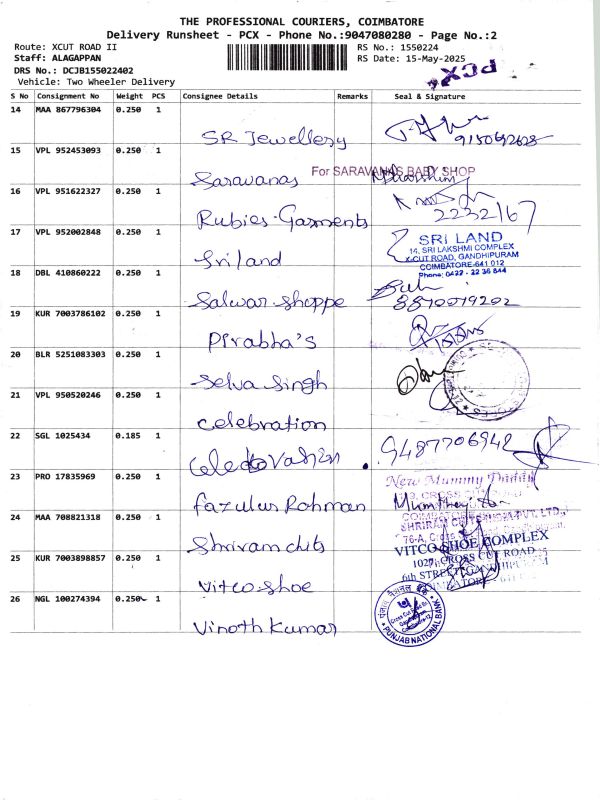 THE PROFESSIONAL COURIERS, COIMBATORE
Delivery Runsheet - PCX - Phone No.:9047080280 - Page No.:2
Route: XCUT ROAD II
RS No.: 1550224
Staff: ALAGAPPAN
RS Date: 15-May-2025
DRS No.: DCJB155022402
PCX
Vehicle: Two Wheeler Delivery
S No Consignment No Weight PCS Consignee Details Remarks Seal & Signature
14 MAA 867796304 0.250 1
SR Jewellery
15 VPL 952453093 0.250 1
For SARAVANAS BABY SHOP
Saravanas
16 VPL 951622327 0.250 1
Rubies Garments 2232167
17 VPL 952002848 0.250 1
SRI LAND
14, SRI LAKSHMI COMPLEX
X-CUT ROAD, GANDHIPURAM
COIMBATORE-641 012
Phone: 0422 - 22 36 844
Sriland
18 DBL 410860222 0.250 1
Salwar Shoppe 8870079202
19 KUR 7003786102 0.250 1
Pirabha's
20 BLR 5251083303 0.250 1
Selva Singh
21 VPL 950520246 0.250 1
Celebration
22 SGL 1025434 0.185 1
9487706942
23 PRO 17835969 0.250 1
New Mummy Daddy
Fazulur Rohman
24 MAA 708821318 0.250 1
Shriram chits
25 KUR 7003898857 0.250 1
VITCO SHOE COMPLEX
1027, CROSS CUT ROAD
Vitco shoe
26 NGL 100274394 0.250 1
PUNJAB NATIONAL BANK
Vinoth Kumar